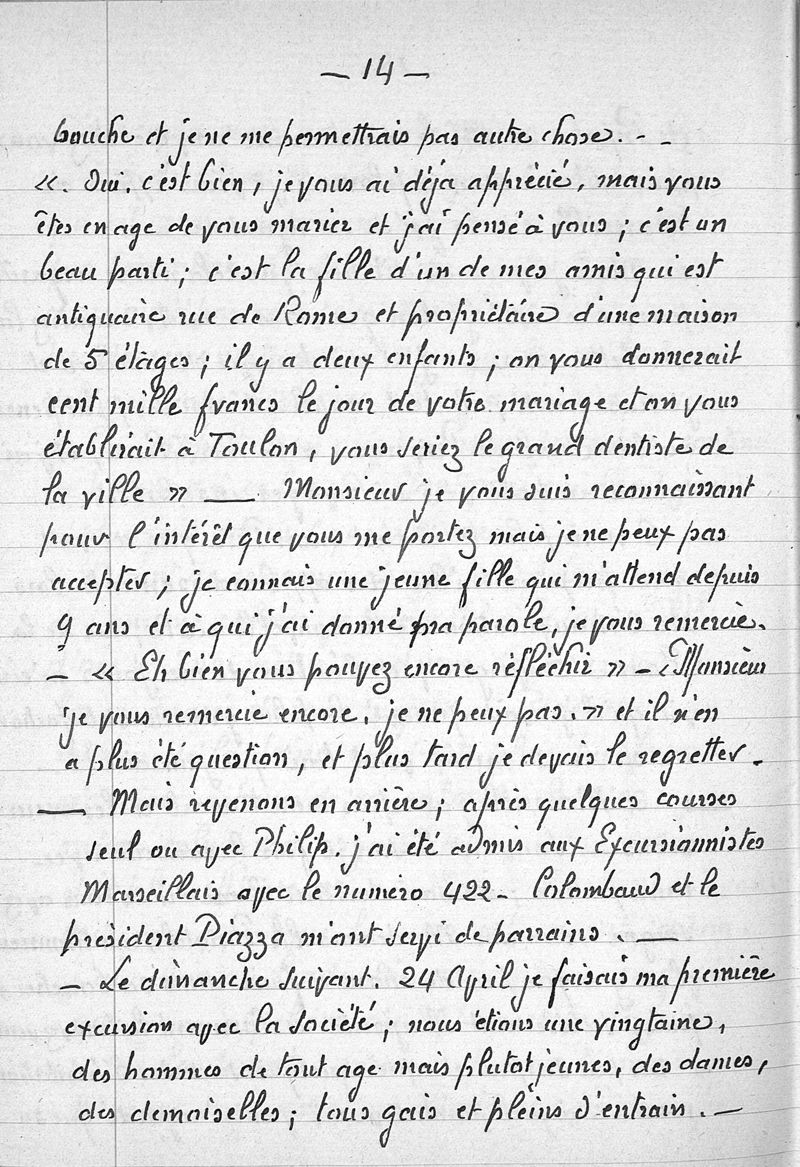 — 14 —
bouche et je ne me permettrais pas autre chose. - -
«. Oui. c'est bien, je vous ai déjà apprécié, mais vous
êtes en age de vous marier et j'ai pensé à vous ; c'est un
beau parti ; c'est la fille d'un de mes amis qui est
antiquaire rue de Rome et propriétaire d'une maison
de 5 étages ; il y a deux enfants ; on vous donnerait
cent mille francs le jour de votre mariage et on vous
établirait à Toulon, vous seriez le grand dentiste de
la ville » — Monsieur je vous suis reconnaissant
pour l'intérêt que vous me portez mais je ne peux pas
accepter ; je connais une jeune fille qui m'attend depuis
9 ans et à qui j'ai donné ma parole, je vous remercie.
— « Eh bien vous pouvez encore réfléchir » — « Monsieur
je vous remercie encore, je ne peux pas. » et il n'en
a plus été question, et plus tard je devais le regretter.
— Mais revenons en arrière ; après quelques courses
seul ou avec Philip. j'ai été admis aux Excursionnistes
Marseillais avec le numéro 422 - Colombaud et le
président Piazza m'ont servi de parrains. —
— Le dimanche suivant. 24 Avril je faisais ma première
excursion avec la société ; nous étions une vingtaine,
des hommes de tout age mais plutot jeunes, des dames,
des demoiselles ; tous gais et pleins d'entrain. —